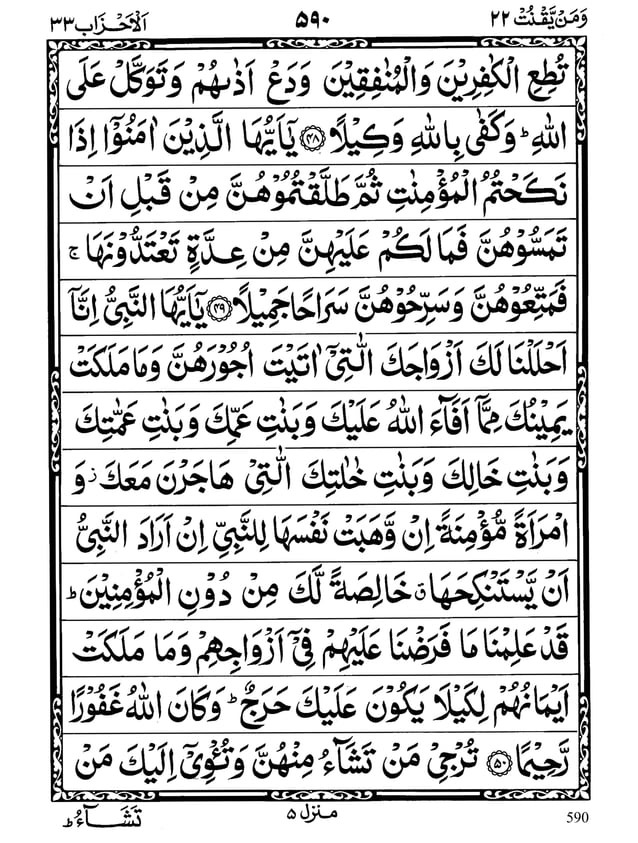 وَمَنْ يَّقْنُتْ ٢٢
۵۹۰
اَلْاَحْزَاب ٣٣
تُطِعِ الْكٰفِرِيْنَ وَالْمُنٰفِقِيْنَ وَدَعْ اَذٰىهُمْ وَتَوَكَّلْ عَلَى
اللّٰهِ ؕ وَكَفٰى بِاللّٰهِ وَكِيْلًا ﴿۴۸﴾ يٰۤاَيُّهَا الَّذِيْنَ اٰمَنُوْۤا اِذَا
نَكَحْتُمُ الْمُؤْمِنٰتِ ثُمَّ طَلَّقْتُمُوْهُنَّ مِنْ قَبْلِ اَنْ
تَمَسُّوْهُنَّ فَمَا لَكُمْ عَلَيْهِنَّ مِنْ عِدَّةٍ تَعْتَدُّوْنَهَا ۚ
فَمَتِّعُوْهُنَّ وَسَرِّحُوْهُنَّ سَرَاحًا جَمِيْلًا ﴿۴۹﴾ يٰۤاَيُّهَا النَّبِيُّ اِنَّاۤ
اَحْلَلْنَا لَكَ اَزْوَاجَكَ الّٰتِيْۤ اٰتَيْتَ اُجُوْرَهُنَّ وَمَا مَلَكَتْ
يَمِيْنُكَ مِمَّاۤ اَفَآءَ اللّٰهُ عَلَيْكَ وَبَنٰتِ عَمِّكَ وَبَنٰتِ عَمّٰتِكَ
وَبَنٰتِ خَالِكَ وَبَنٰتِ خٰلٰتِكَ الّٰتِيْ هَاجَرْنَ مَعَكَ ز وَ
امْرَاَةً مُّؤْمِنَةً اِنْ وَّهَبَتْ نَفْسَهَا لِلنَّبِيِّ اِنْ اَرَادَ النَّبِيُّ
اَنْ يَّسْتَنْكِحَهَا ق خَالِصَةً لَّكَ مِنْ دُوْنِ الْمُؤْمِنِيْنَ ؕ
قَدْ عَلِمْنَا مَا فَرَضْنَا عَلَيْهِمْ فِيْۤ اَزْوَاجِهِمْ وَمَا مَلَكَتْ
اَيْمَانُهُمْ لِكَيْلَا يَكُوْنَ عَلَيْكَ حَرَجٌ ؕ وَكَانَ اللّٰهُ غَفُوْرًا
رَّحِيْمًا ﴿۵۰﴾ تُرْجِيْ مَنْ تَشَآءُ مِنْهُنَّ وَتُـْٔوِيْۤ اِلَيْكَ مَنْ
تَشَآءُ ؕ
منزل ۵
590